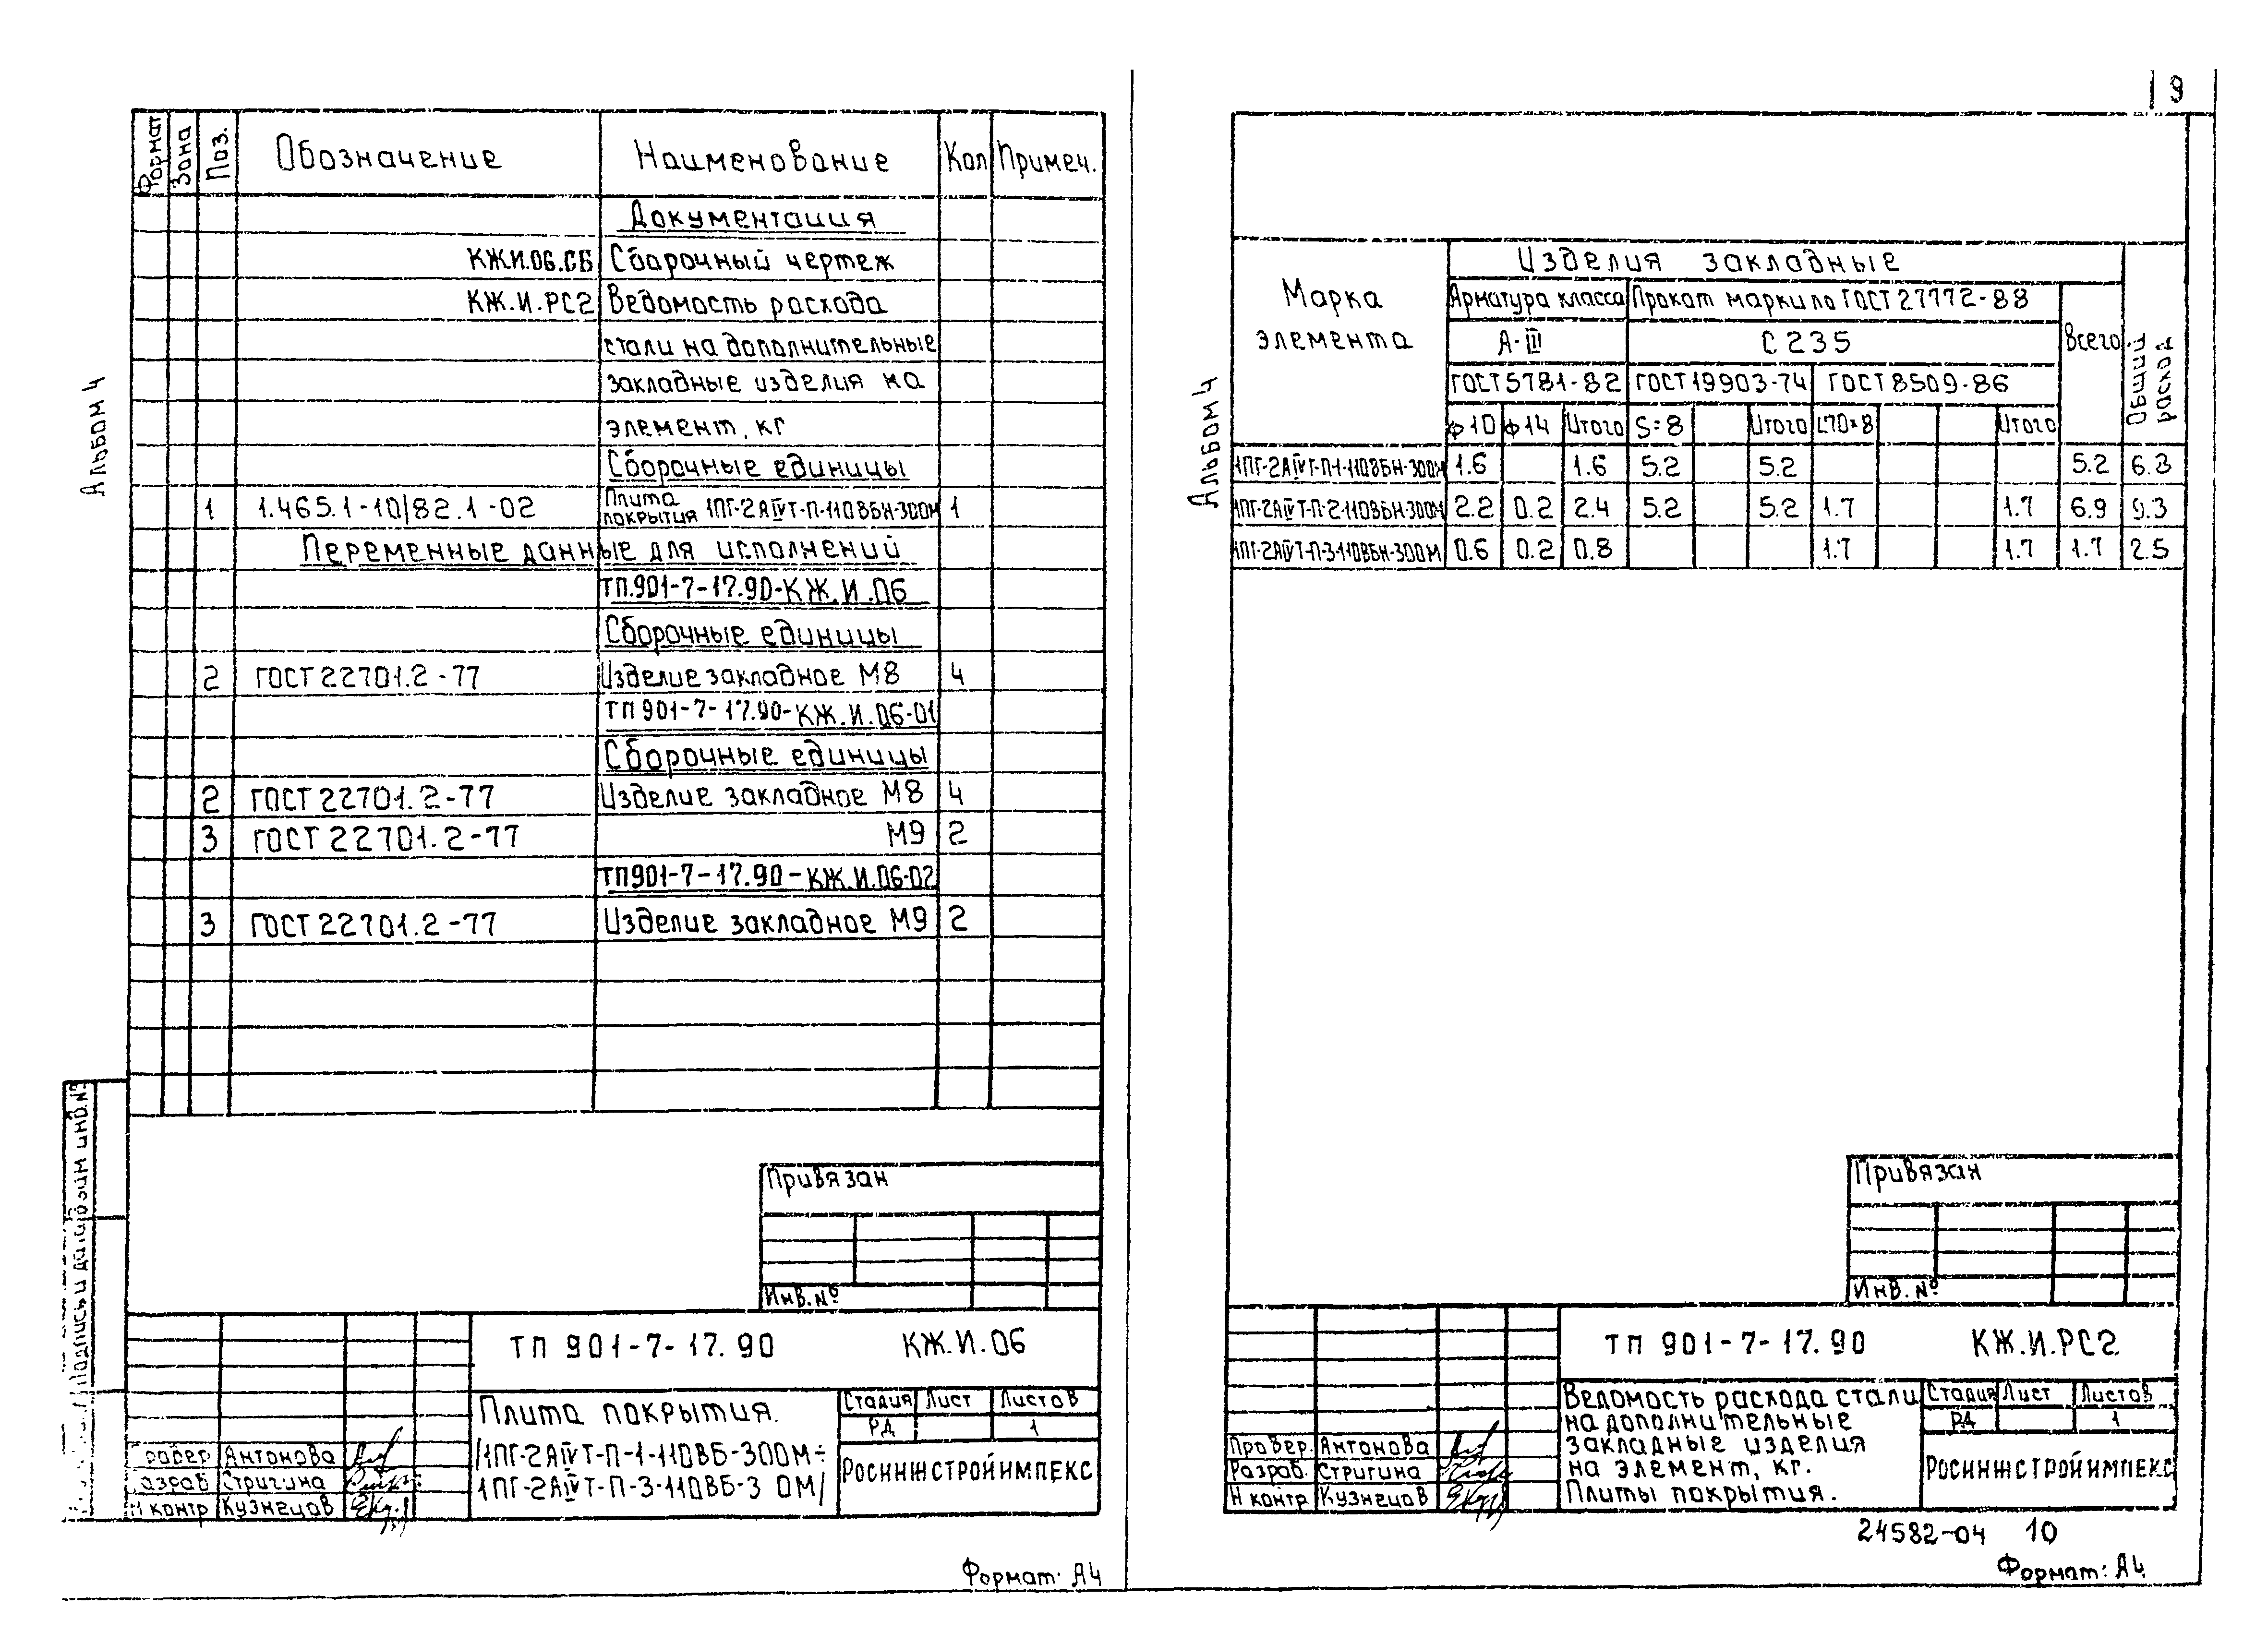 9
Альбом 4
Формат Зона Поз. Обозначение Наименование Кол Примеч.
Документация
КЖИ.06.СБ Сборочный чертеж
КЖ.И.РС2 Ведомость расхода
стали на дополнительные
закладные изделия на
элемент, кг
Сборочные единицы
1 1.465.1-10/82.1-02 Плита покрытия 1ПГ-2АIVТ-П-110ВБН-300М 1
Переменные данные для исполнений
ТП.901-7-17.90-КЖ.И.06
Сборочные единицы
2 ГОСТ 22701.2-77 Изделие закладное М8 4
ТП 901-7-17.90-КЖ.И.06-01
Сборочные единицы
2 ГОСТ 22701.2-77 Изделие закладное М8 4
3 ГОСТ 22701.2-77 М9 2
ТП901-7-17.90-КЖ.И.06-02
3 ГОСТ 22701.2-77 Изделие закладное М9 2
Подпись и дата Взам инв.№
Привязан
Инв.№
ТП 901-7-17.90 КЖ.И.06
Плита покрытия.
/1ПГ-2АIVТ-П-1-110ВБ-300М÷
1ПГ-2АIVТ-П-3-110ВБ-3 0М/
Стадия Лист Листов
РД 1
РОСИНЖСТРОЙИМПЕКС
ровер Антонова
азраб Стригина
Н контр Кузнецов
Формат: А4
Альбом 4
Марка элемента
Изделия закладные
Арматура класса Прокат марки по ГОСТ 27772-88
Всего
Общий расход
А-III С235
ГОСТ 5781-82 ГОСТ 19903-74 ГОСТ 8509-86
ф10 ф14 Итого S=8 Итого L70×8 Итого
1ПГ-2АIVТ-П-1-110ВБН-300М 1.6 1.6 5.2 5.2 5.2 6.8
1ПГ-2АIVТ-П-2-110ВБН-300М 2.2 0.2 2.4 5.2 5.2 1.7 1.7 6.9 9.3
1ПГ-2АIVТ-П-3-110ВБН-300М 0.6 0.2 0.8 1.7 1.7 1.7 2.5
Привязан
Инв.№
ТП 901-7-17.90 КЖ.И.РС2
Ведомость расхода стали
на дополнительные
закладные изделия
на элемент, кг.
Плиты покрытия.
Стадия Лист Листов
РД 1
РОСИНЖСТРОЙИМПЕКС
Провер. Антонова
Разраб. Стригина
Н контр Кузнецов
24582-04 10
Формат: А4